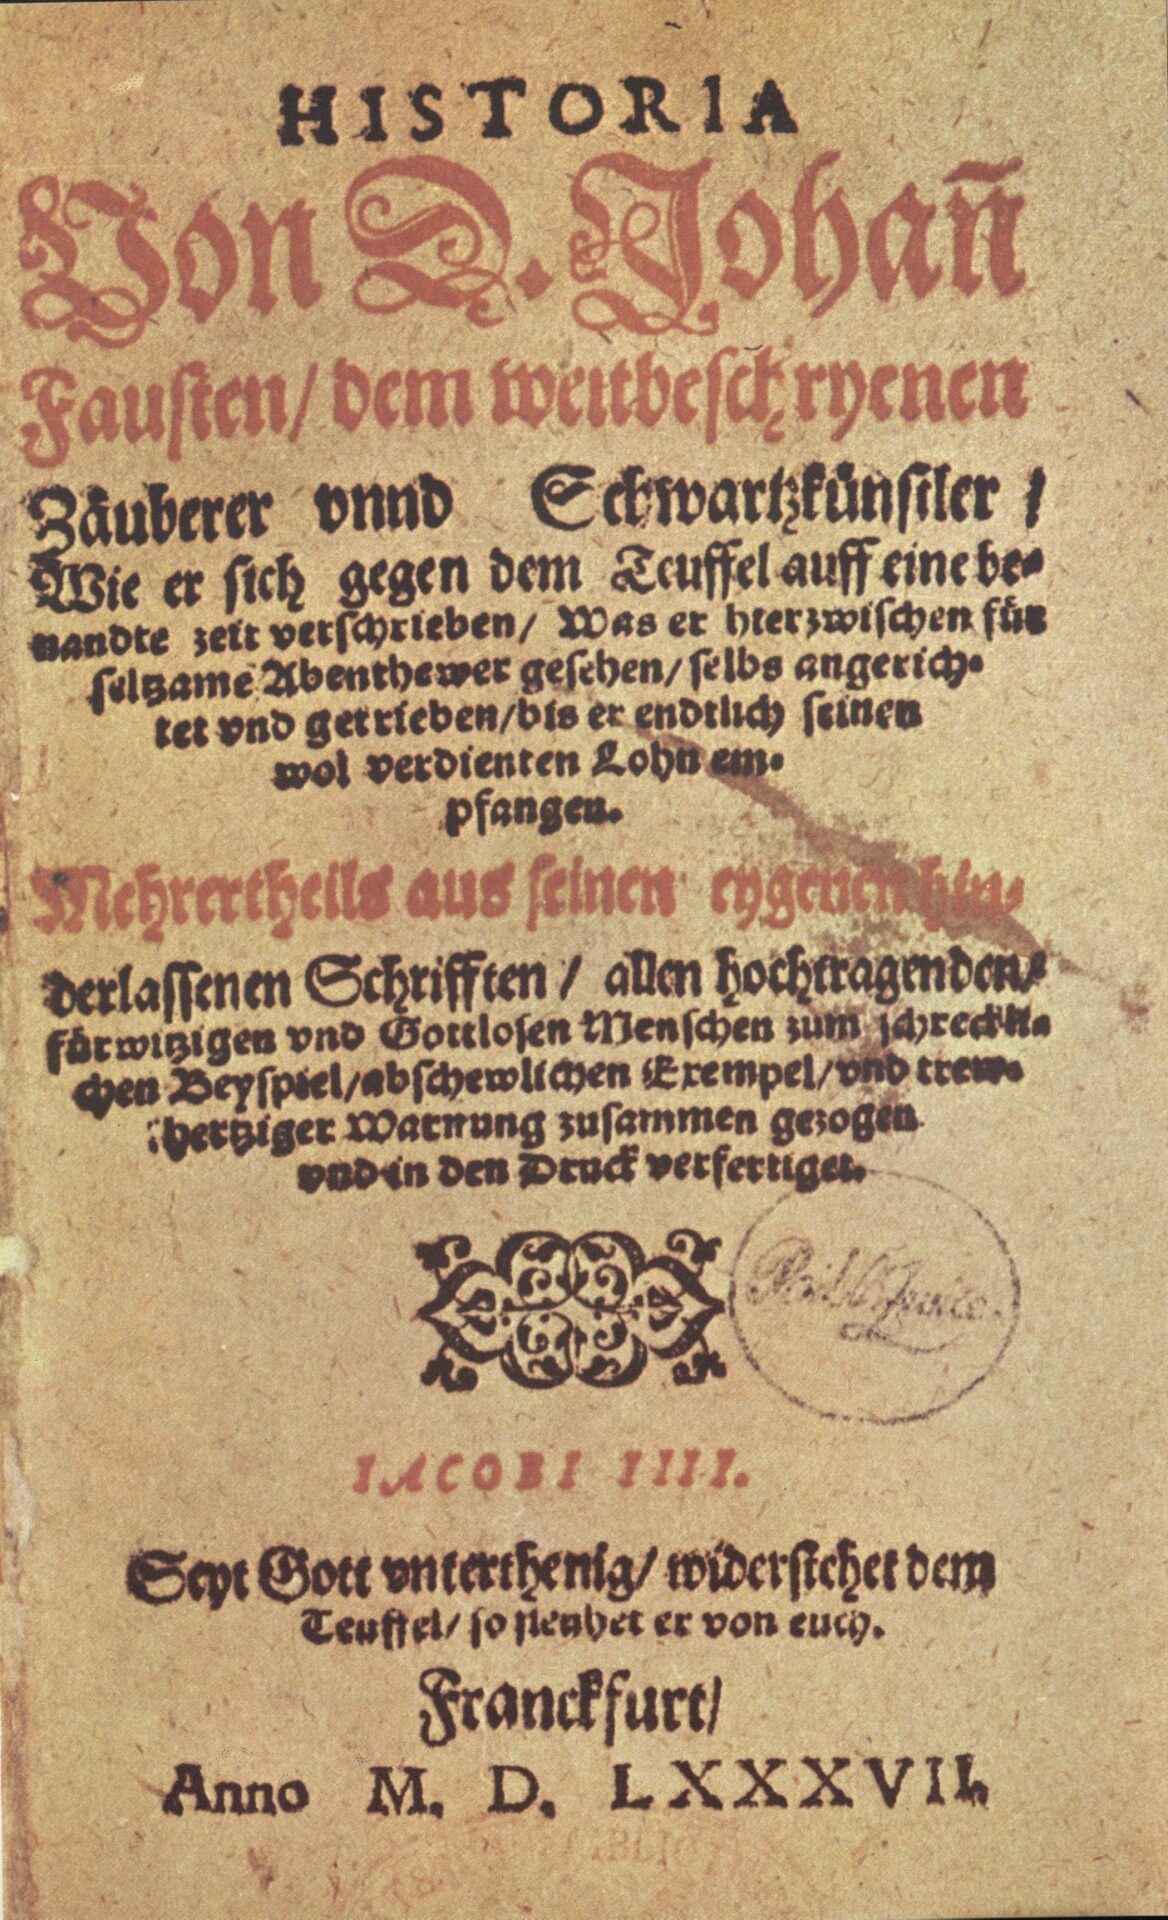 HISTORIA
Von D. Johañ
Fausten/ dem weitbeschryenen
Zäuberer vnnd Schwartzkünstler /
Wie er sich gegen dem Teuffel auff eine be-
nandte zeit verschrieben/ Was er hierzwischen für
seltzame Abenthewer gesehen/ selbs angerich-
tet vnd getrieben/ bis er endtlich seinen
wol verdienten Lohn em-
pfangen.
Mehrertheils aus seinen eygenen hin-
derlassenen Schrifften/ allen hochtragenden/
fürwitzigen vnd Gottlosen Menschen zum schreckli-
chen Beyspiel/ abschewlichen Exempel/ vnd trew-
hertziger Warnung zusammen gezogen
vnd in den Druck verfertiget.
IACOBI IIII.
Seyt Gott vnterthenig/ widerstehet dem
Teuffel/ so fleuhet er von euch.
Franckfurt/
Anno M. D. LXXXVII.